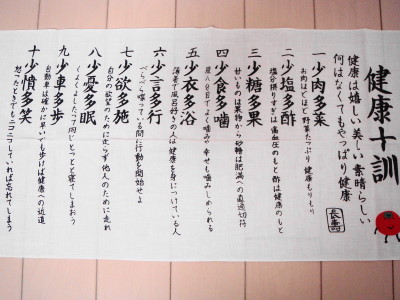 健康十訓
健康は嬉しい 美しい 素晴らしい
何はなくてもやっぱり健康
長寿
一 少肉多菜
お肉ほどほど野菜たっぷり 健康もりもり
二 少塩多酢
塩分摂りすぎは高血圧のもと 酢は健康のもと
三 少糖多果
甘いものは果物から 砂糖は肥満への直通切符
四 少食多噛
腹八分目でよく噛みや 幸せも噛みしめられる
五 少衣多浴
薄着で風呂好きの人は健康を身につけている人
六 少言多行
べらべら喋っている間に行動を開始せよ
七 少欲多施
自分の欲望のために走らず 他人のために走れ
八 少憂多眠
くよくよしたって同じ とっとと寝てしまおう
九 少車多歩
自動車は確かに早い でも歩けば健康への近道
十 少憤多笑
怒ったときでもニコニコしていれば忘れてしまう